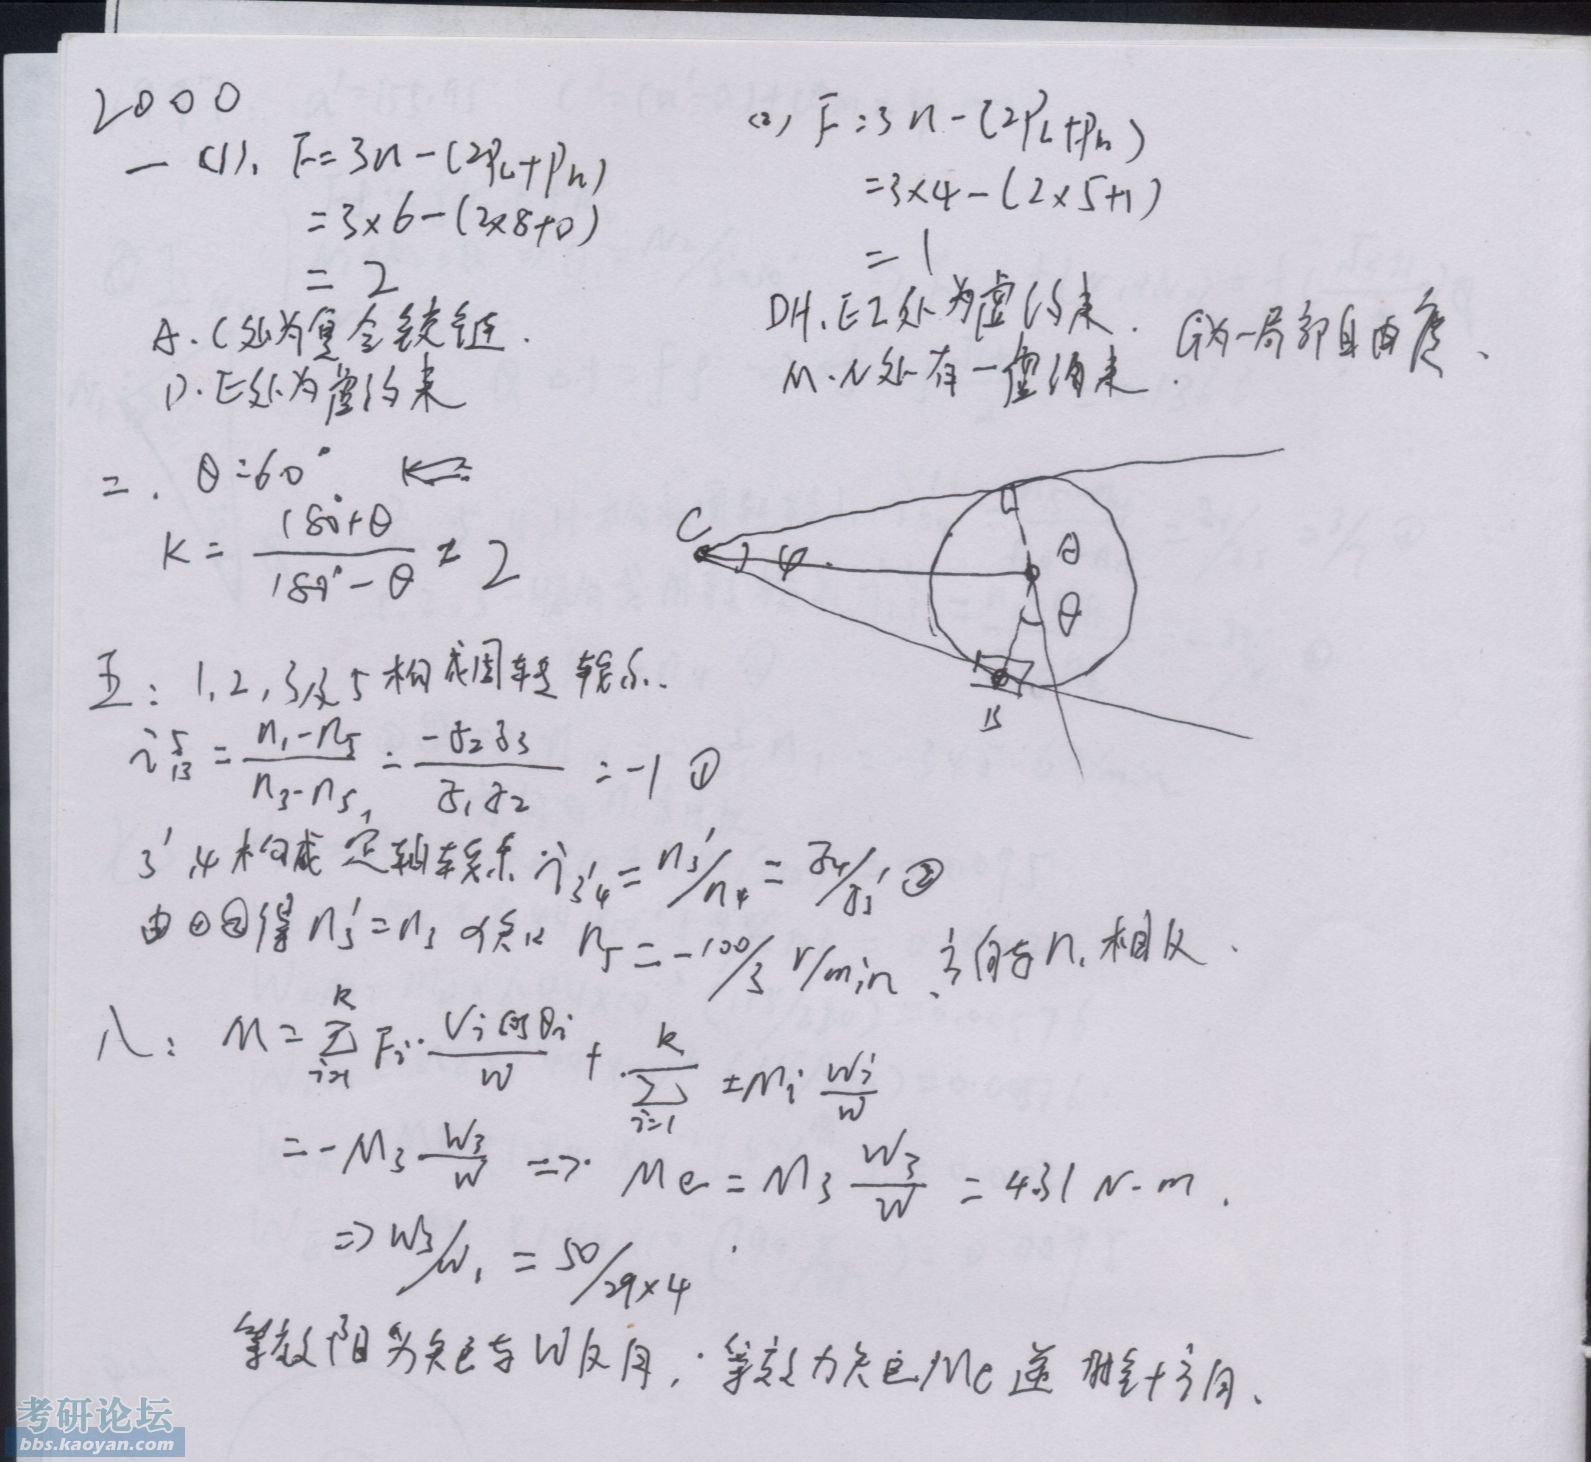 2000
一 (1). F=3n-(2PL+Ph)
=3×6-(2×8+0)
= 2
A.C处为复合铰链.
D.E处为虚约束
(2) F=3n-(2PL+Ph)
=3×4-(2×5+1)
= 1
DH.EI处为虚约束.
M.N处有一虚约束.
G为一局部自由度.
二. θ=60°
K= (180°+θ)/(180°-θ) = 2
C φ θ θ B
五: 1,2,3及5构成周转轮系.
i₁₃⁵ = (n₁-n₅)/(n₃-n₅) = (-z₂z₃)/(z₁z₂) = -1 ①
3′,4构成定轴轮系 i₃′₄ = n₃′/n₄ = z₄/z₃′ ②
由①②得 n₃′=n₃ n₅=-100/3 r/min. 方向与n₁相反.
八: M= Σ(i=1→k) Fi·(Vi cosθi)/w + Σ(i=1→k) ±Mi wi/w
=-M₃ w₃/w => Me=M₃ w₃/w = 431 N·m.
=> w₃/w₁ = 50/29×4
等效阻力矩与W反向, 等效力矩Me逆时针方向.
考研论坛
bbs.kaoyan.com